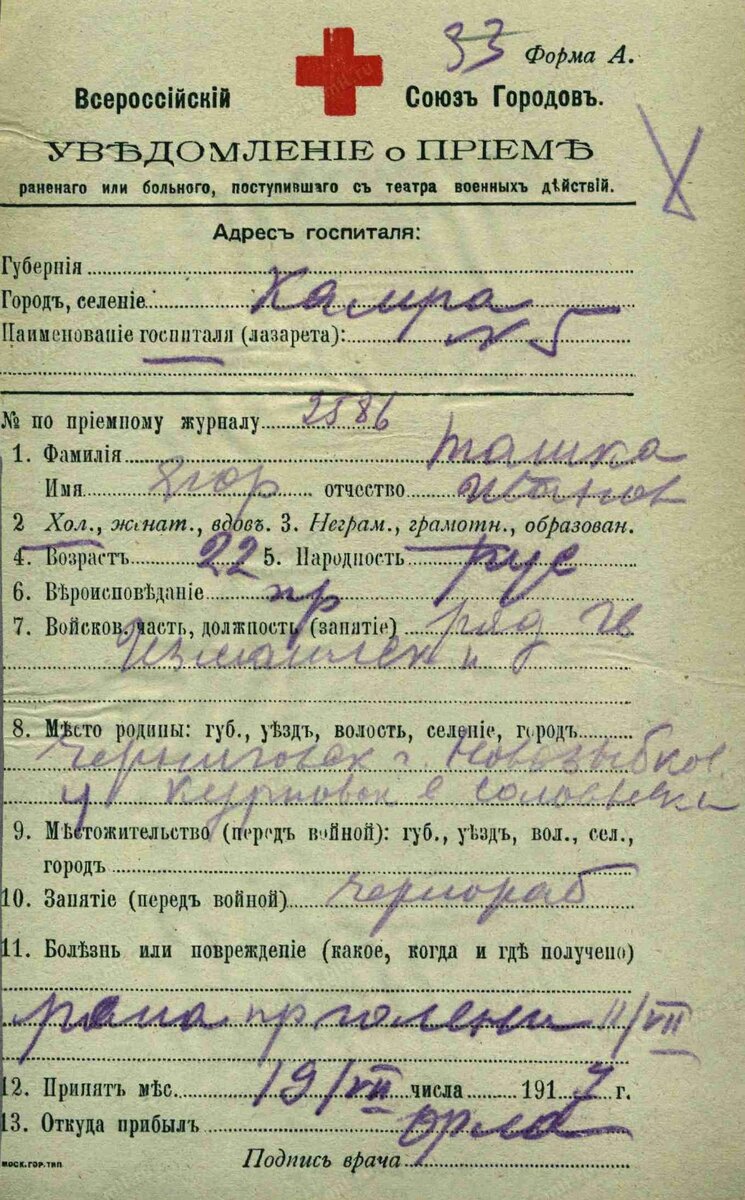 33 Форма А.
Всероссійскій Союзъ Городовъ.
УВѢДОМЛЕНІЕ о ПРІЕМѢ
раненаго или больного, поступившаго съ театра военныхъ дѣйствій.
Адресъ госпиталя:
Губернія
Городъ, селеніе
Наименованіе госпиталя (лазарета): № 5
№ по пріемному журналу 2586
1. Фамилія Ташка
Имя Егор отчество Иванов
2 Хол., женат., вдовъ. 3. Неграм., грамотн., образован.
4. Возрастъ 22 5. Народность рус
6. Вѣроисповѣданіе пр
7. Войсков. часть, должность (занятіе) ряд гв
Измаиловск п
8. Мѣсто родины: губ., уѣздъ, волость, селеніе, городъ
Черниговск г. Новозыбков
у с Соловьевки
9. Мѣстожительство (передъ войной): губ., уѣздъ, вол., сел.,
городъ
10. Занятіе (передъ войной) чернораб
11. Болѣзнь или поврежденіе (какое, когда и гдѣ получено)
рана пр голени 11/VII
12. Принятъ мѣс. 19/VII числа 1917 г.
13. Откуда прибылъ Орла
Подпись врача
МОСК.ГОР.ТИП